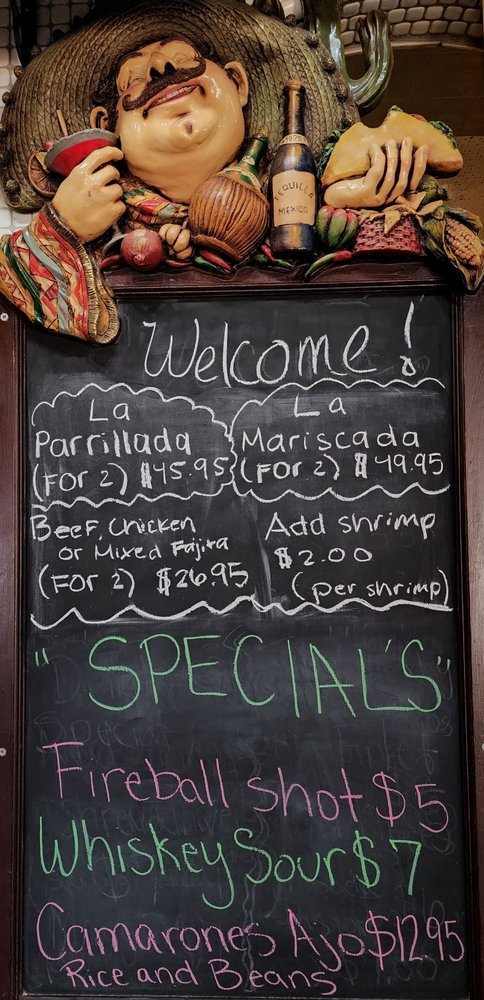 TEQUILLE
MEXICO
Welcome!
La
Parrillada
(FOR 2) $45.95
La
Mariscada
(FOR 2) $49.95
Beef, Chicken
or Mixed Fajita
(FOR 2) $26.95
Add shrimp
$2.00
(per shrimp)
"SPECIAL'S"
Fireball shot $5
Whiskey Sour $7
Camarones Ajo $12.95
Rice and Beans